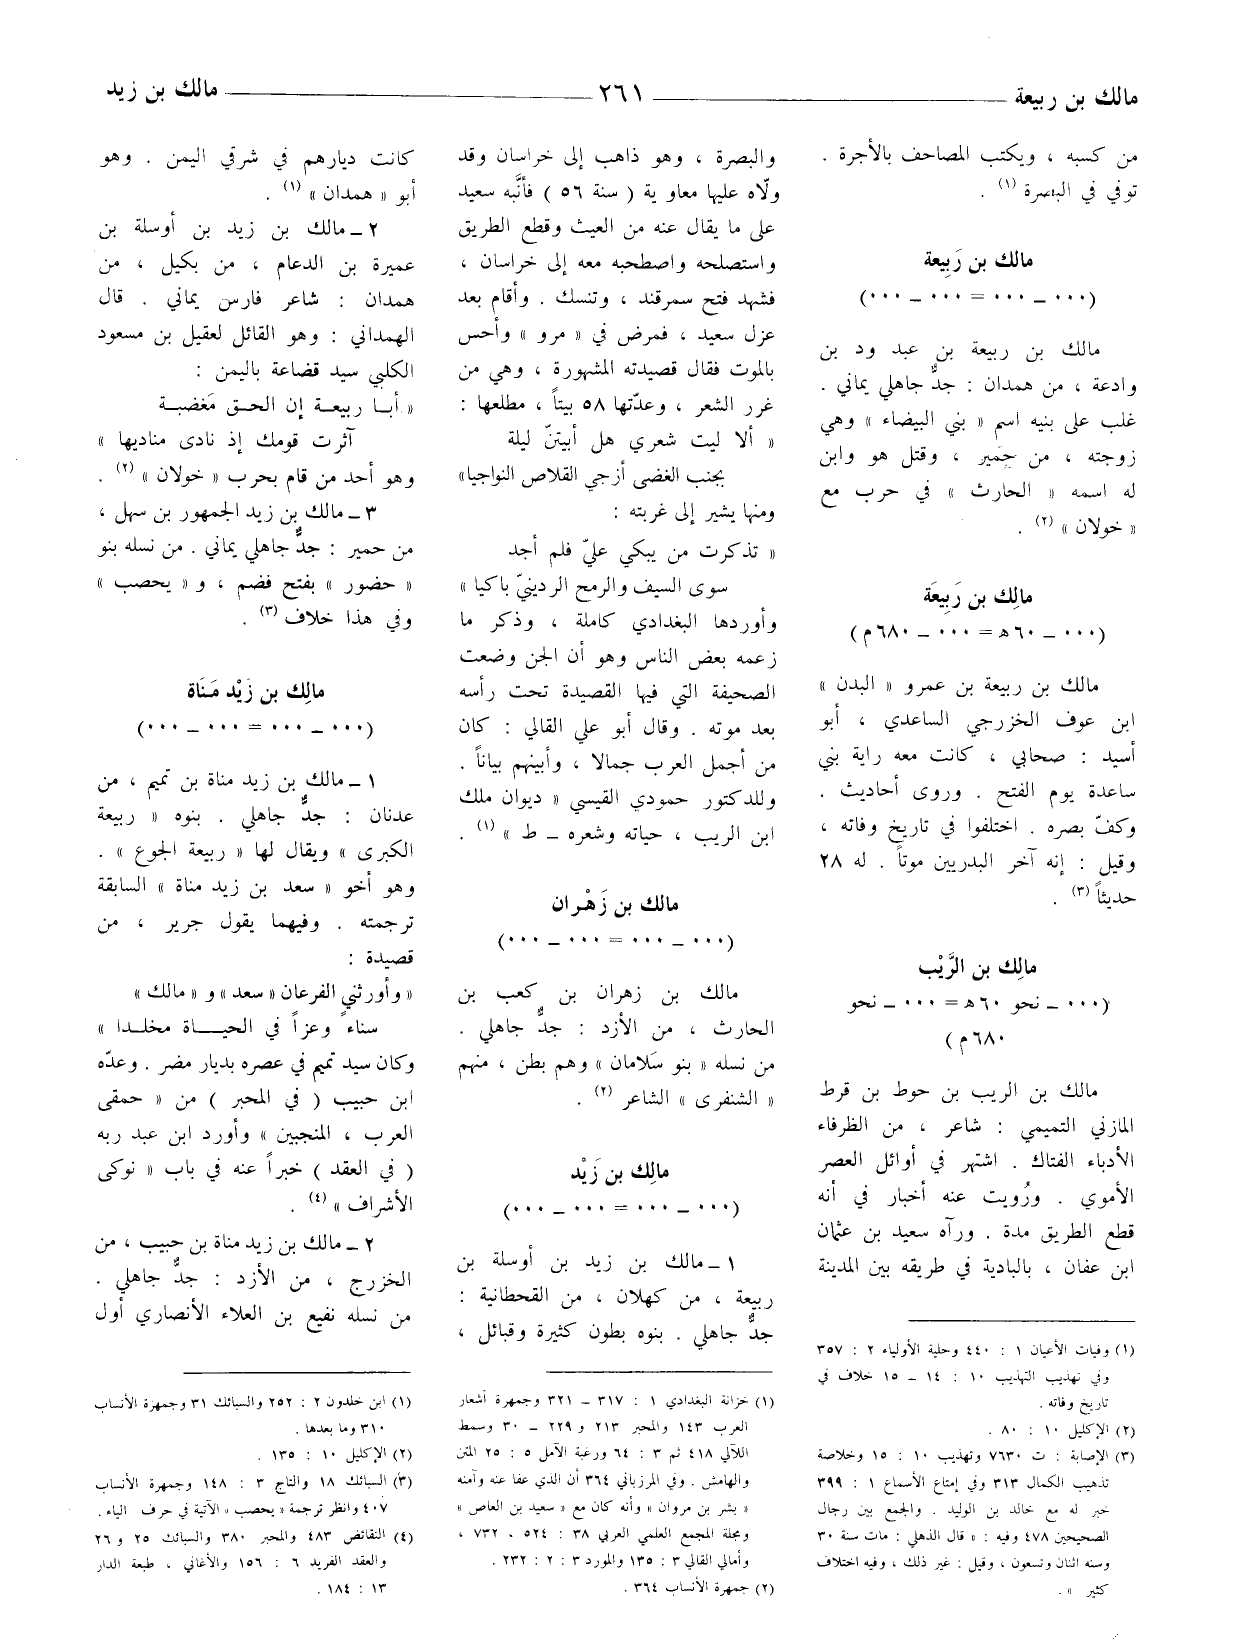 مالك بن ربيعة ٢٦١ مالك بن زيد
من كسبه ، ويكتب المصاحف بالأجرة .
توفي في البصرة (١) .
مالك بن رَبِيعة
(٠٠٠ ـ ٠٠٠ = ٠٠٠ ـ ٠٠٠)
مالك بن ربيعة بن عبد ود بن
وادعة ، من همدان : جدٌّ جاهلي يماني .
غلب على بنيه اسم « بني البيضاء » وهي
زوجته ، من حِمْير ، وقتل هو وابن
له اسمه « الحارث » في حرب مع
« خولان » (٢) .
مالِك بن رَبِيعَة
(٠٠٠ ـ ٦٠هـ = ٠٠٠ ـ ٦٨٠م )
مالك بن ربيعة بن عمرو « البدن »
ابن عوف الخزرجي الساعدي ، أبو
أسيد : صحابي ، كانت معه راية بني
ساعدة يوم الفتح . وروى أحاديث .
وكفّ بصره . اختلفوا في تاريخ وفاته ،
وقيل : إنه آخر البدريين موتاً . له ٢٨
حديثاً (٣) .
مالِك بن الرَّيْب
(٠٠٠ ـ نحو ٦٠هـ = ٠٠٠ ـ نحو
٦٨٠م )
مالك بن الريب بن حوط بن قرط
المازني التميمي : شاعر ، من الظرفاء
الأدباء الفتاك . اشتهر في أوائل العصر
الأموي . ورُويت عنه أخبار في أنه
قطع الطريق مدة . ورآه سعيد بن عثمان
ابن عفان ، بالبادية في طريقه بين المدينة
(١) وفيات الأعيان ١ : ٤٤٠ وحلية الأولياء ٢ : ٣٥٧
وفي تهذيب التهذيب ١٠ : ١٤ ـ ١٥ خلاف في
تاريخ وفاته .
(٢) الإكليل ١٠ : ٨٠ .
(٣) الإصابة : ت ٧٦٣٠ وتهذيب ١٠ : ١٥ وخلاصة
تذهيب الكمال ٣١٣ وفي إمتاع الأسماع ١ : ٣٩٩
خبر له مع خالد بن الوليد . والجمع بين رجال
الصحيحين ٤٧٨ وفيه : « قال الذهلي : مات سنة ٣٠
وسنه اثنان وتسعون ، وقيل : غير ذلك ، وفيه اختلاف
كثير » .
والبصرة ، وهو ذاهب إلى خراسان وقد
ولّاه عليها معاوية ( سنة ٥٦ ) فأنَّبه سعيد
على ما يقال عنه من العيث وقطع الطريق
واستصلحه واصطحبه معه إلى خراسان ،
فشهد فتح سمرقند ، وتنسك . وأقام بعد
عزل سعيد ، فمرض في « مرو » وأحس
بالموت فقال قصيدته المشهورة ، وهي من
غرر الشعر ، وعدّتها ٥٨ بيتاً ، مطلعها :
« ألا ليت شعري هل أبيتنّ ليلة
بجنب الغضى أزجي القلاص النواجيا»
ومنها يشير إلى غربته :
« تذكرت من يبكي عليّ فلم أجد
سوى السيف والرمح الردينيّ باكيا »
وأوردها البغدادي كاملة ، وذكر ما
زعمه بعض الناس وهو أن الجن وضعت
الصحيفة التي فيها القصيدة تحت رأسه
بعد موته . وقال أبو علي القالي : كان
من أجمل العرب جمالا ، وأبينهم بياناً .
وللدكتور حمودي القيسي « ديوان ملك
ابن الريب ، حياته وشعره ـ ط » (١) .
مالك بن زَهْران
(٠٠٠ ـ ٠٠٠ = ٠٠٠ ـ ٠٠٠)
مالك بن زهران بن كعب بن
الحارث ، من الأزد : جدٌّ جاهلي .
من نسله « بنو سَلامان » وهم بطن ، منهم
« الشنفرى » الشاعر (٢) .
مالِك بن زَيْد
(٠٠٠ ـ ٠٠٠ = ٠٠٠ ـ ٠٠٠)
١ ـ مالك بن زيد بن أوسلة بن
ربيعة ، من كهلان ، من القحطانية :
جدٌّ جاهلي . بنوه بطون كثيرة وقبائل ،
(١) خزانة البغدادي ١ : ٣١٧ ـ ٣٢١ وجمهرة أشعار
العرب ١٤٣ والمحبر ٢١٣ و ٢٢٩ ـ ٣٠ وسمط
اللآلي ٤١٨ ثم ٣ : ٦٤ ورغبة الآمل ٥ : ٢٥ المتن
والهامش . وفي المرزباني ٣٦٤ أن الذي عفا عنه وآمنه
« بشر بن مروان » وأنه كان مع « سعيد بن العاص »
ومجلة المجمع العلمي العربي ٣٨ : ٥٢٤ ، ٧٣٢ ،
وأمالي القالي ٣ : ١٣٥ والمورد ٣ : ٢ : ٢٣٢ .
(٢) جمهرة الأنساب ٣٦٤ .
كانت ديارهم في شرقي اليمن . وهو
أبو « همدان » (١) .
٢ ـ مالك بن زيد بن أوسلة بن
عميرة بن الدعام ، من بكيل ، من
همدان : شاعر فارس يماني . قال
الهمداني : وهو القائل لعقيل بن مسعود
الكلبي سيد قضاعة باليمن :
« أبـا ربيعـة إن الحـق مَغضبـة
آثرت قومك إذ نادى مناديها »
وهو أحد من قام بحرب « خولان » (٢) .
٣ ـ مالك بن زيد الجمهور بن سهل ،
من حمير : جدٌّ جاهلي يماني . من نسله بنو
« حضور » بفتح فضم ، و « يحصب »
وفي هذا خلاف (٣) .
مالِك بن زَيْد مَنَاة
(٠٠٠ ـ ٠٠٠ = ٠٠٠ ـ ٠٠٠)
١ ـ مالك بن زيد مناة بن تميم ، من
عدنان : جدٌّ جاهلي . بنوه « ربيعة
الكبرى » ويقال لها « ربيعة الجوع » .
وهو أخو « سعد بن زيد مناة » السابقة
ترجمته . وفيهما يقول جرير ، من
قصيدة :
« وأورثني الفرعان « سعد » و « مالك »
سناءً وعزاً في الحيـــاة مخلـدا »
وكان سيد تميم في عصره بديار مضر . وعدّه
ابن حبيب ( في المحبر ) من « حمقى
العرب ، المنجبين » وأورد ابن عبد ربه
( في العقد ) خبراً عنه في باب « نوكى
الأشراف » (٤) .
٢ ـ مالك بن زيد مناة بن حبيب ، من
الخزرج ، من الأزد : جدٌّ جاهلي .
من نسله نفيع بن العلاء الأنصاري أول
(١) ابن خلدون ٢ : ٢٥٢ والسبائك ٣١ وجمهرة الأنساب
٣١٠ وما بعدها .
(٢) الإكليل ١٠ : ١٣٥ .
(٣) السبائك ١٨ والتاج ٣ : ١٤٨ وجمهرة الأنساب
٤٠٧ وانظر ترجمة « يحصب » الآتية في حرف الياء .
(٤) النقائض ٤٨٣ والمحبر ٣٨٠ والسبائك ٢٥ و ٢٦
والعقد الفريد ٦ : ١٥٦ والأغاني ، طبعة الدار
١٣ : ١٨٤ .